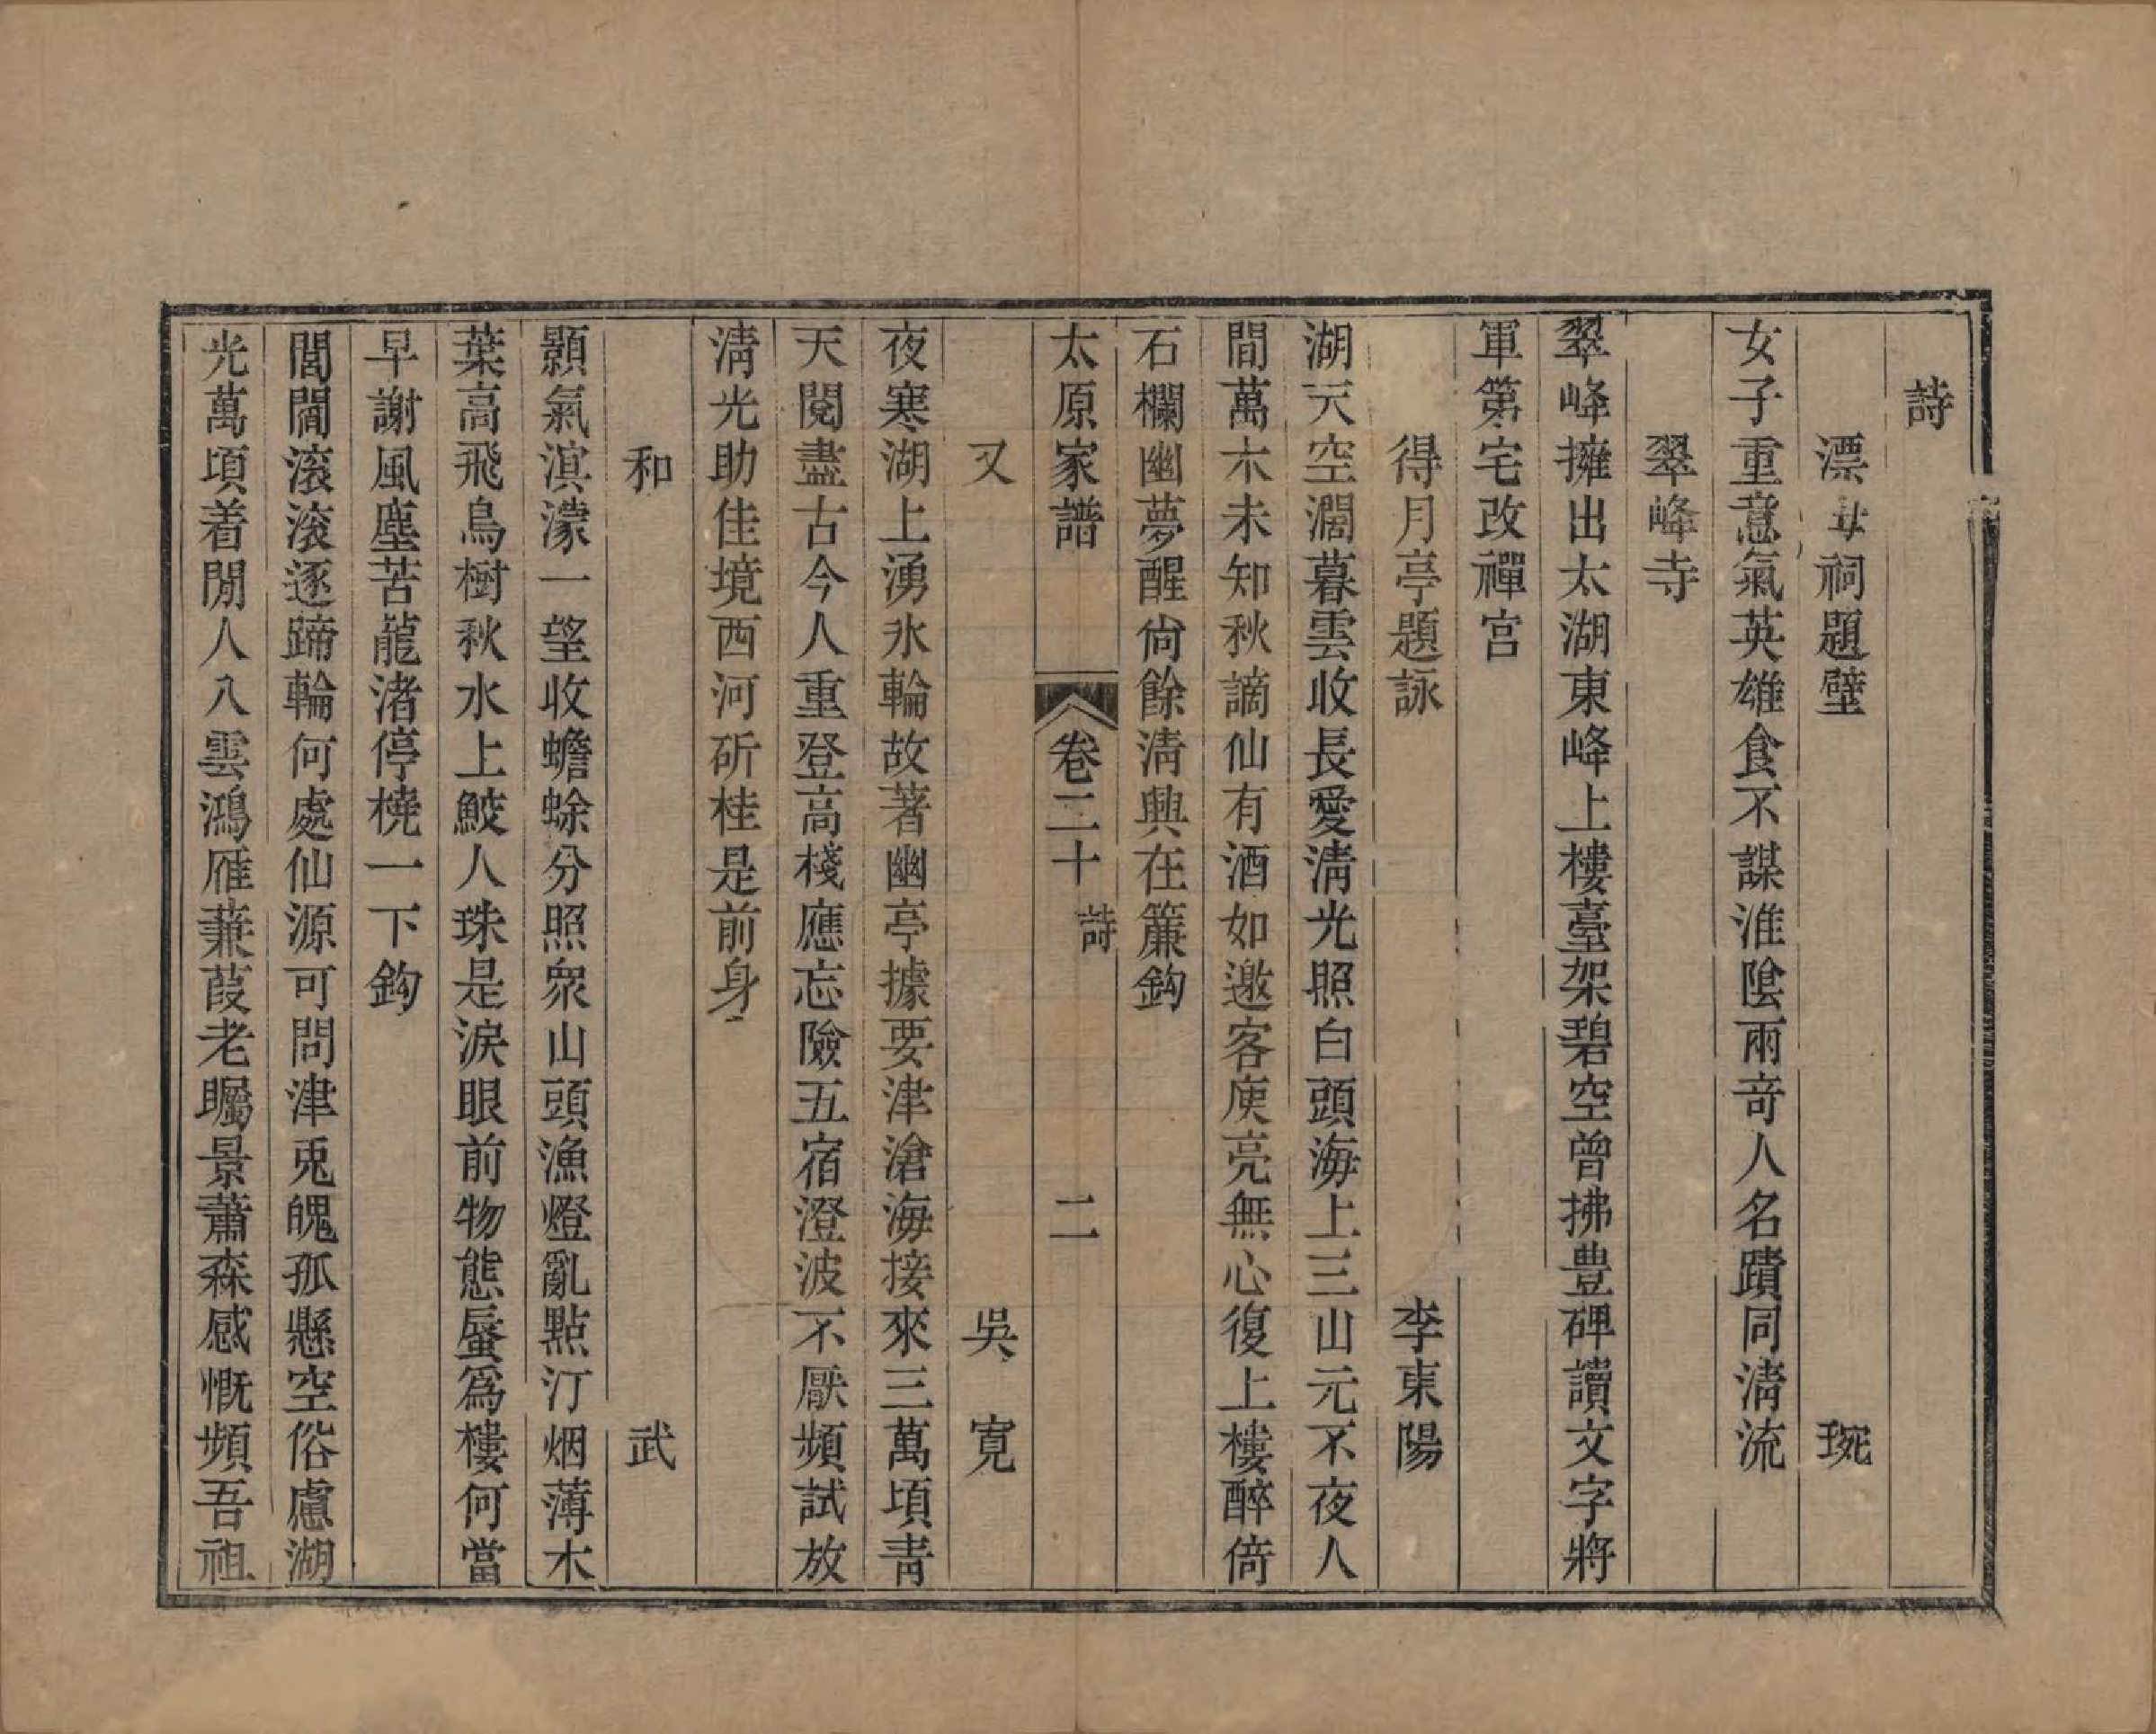 詩
漂母祠題壁　琬
女子重意氣英雄食不謀淮陰雨奇人名蹟同淸流
翠峰寺
翠峰擁出太湖東峰上樓臺架碧空曾拂豊碑讀文字將
軍第宅改禪宮
得月亭題詠　李東陽
湖天空濶暮雲收長愛淸光照白頭海上三山元不夜人
間萬木未知秋謫仙有酒如邀客庾亮無心復上樓醉倚
石欄幽夢醒尙餘淸興在簾鈎
太原家譜　卷二十　詩　二
又　吳寬
夜寒湖上湧氷輪故著幽亭據要津滄海接來三萬頃靑
天閱盡古今人重登高棧應忘險五宿澄波不厭頻試放
淸光助佳境西河斫桂是前身
和　武
顥氣溟濛一望收蟾蜍分照衆山頭漁燈亂點汀烟薄木
葉高飛鳥樹秋水上鮫人珠是淚眼前物態蜃爲樓何當
早謝風塵苦龍渚停橈一下鈎
閶閶滚滚逐蹄輪何處仙源可問津兎魄孤懸空俗慮湖
光萬頃着閒人入雲鴻雁蒹葭老矚景蕭森感慨頻吾祖